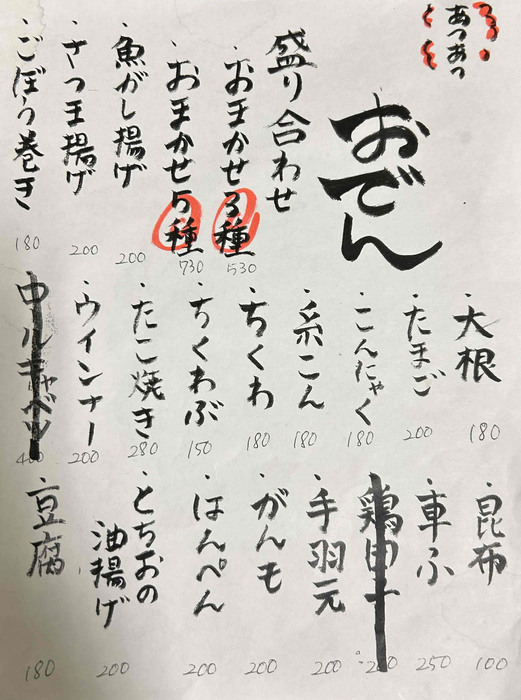 あつあつ
おでん
盛り合わせ
・おまかせ3種 530
・おまかせ5種 730
・魚がし揚げ 200
・さつま揚げ 200
・ごぼう巻き 180
・大根 180
・たまご 200
・こんにゃく 180
・糸こん 180
・ちくわ 180
・ちくわぶ 150
・たこ焼き 280
・ウインナー 200
ロールキャベツ 400
・昆布 100
・車ふ 250
・手羽元 200
・がんも 200
・はんぺん 200
・とちおの
油揚げ 200
・豆腐 180